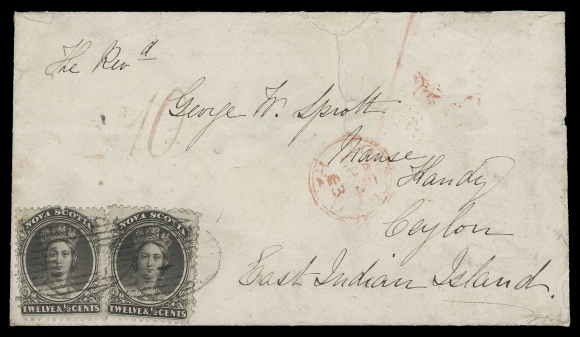 The Revd
George W. Sprott
Manse
Kandy
Ceylon
East Indian Island.
10
NOVA SCOTIA
TWELVE & ½ CENTS
NOVA SCOTIA
TWELVE & ½ CENTS